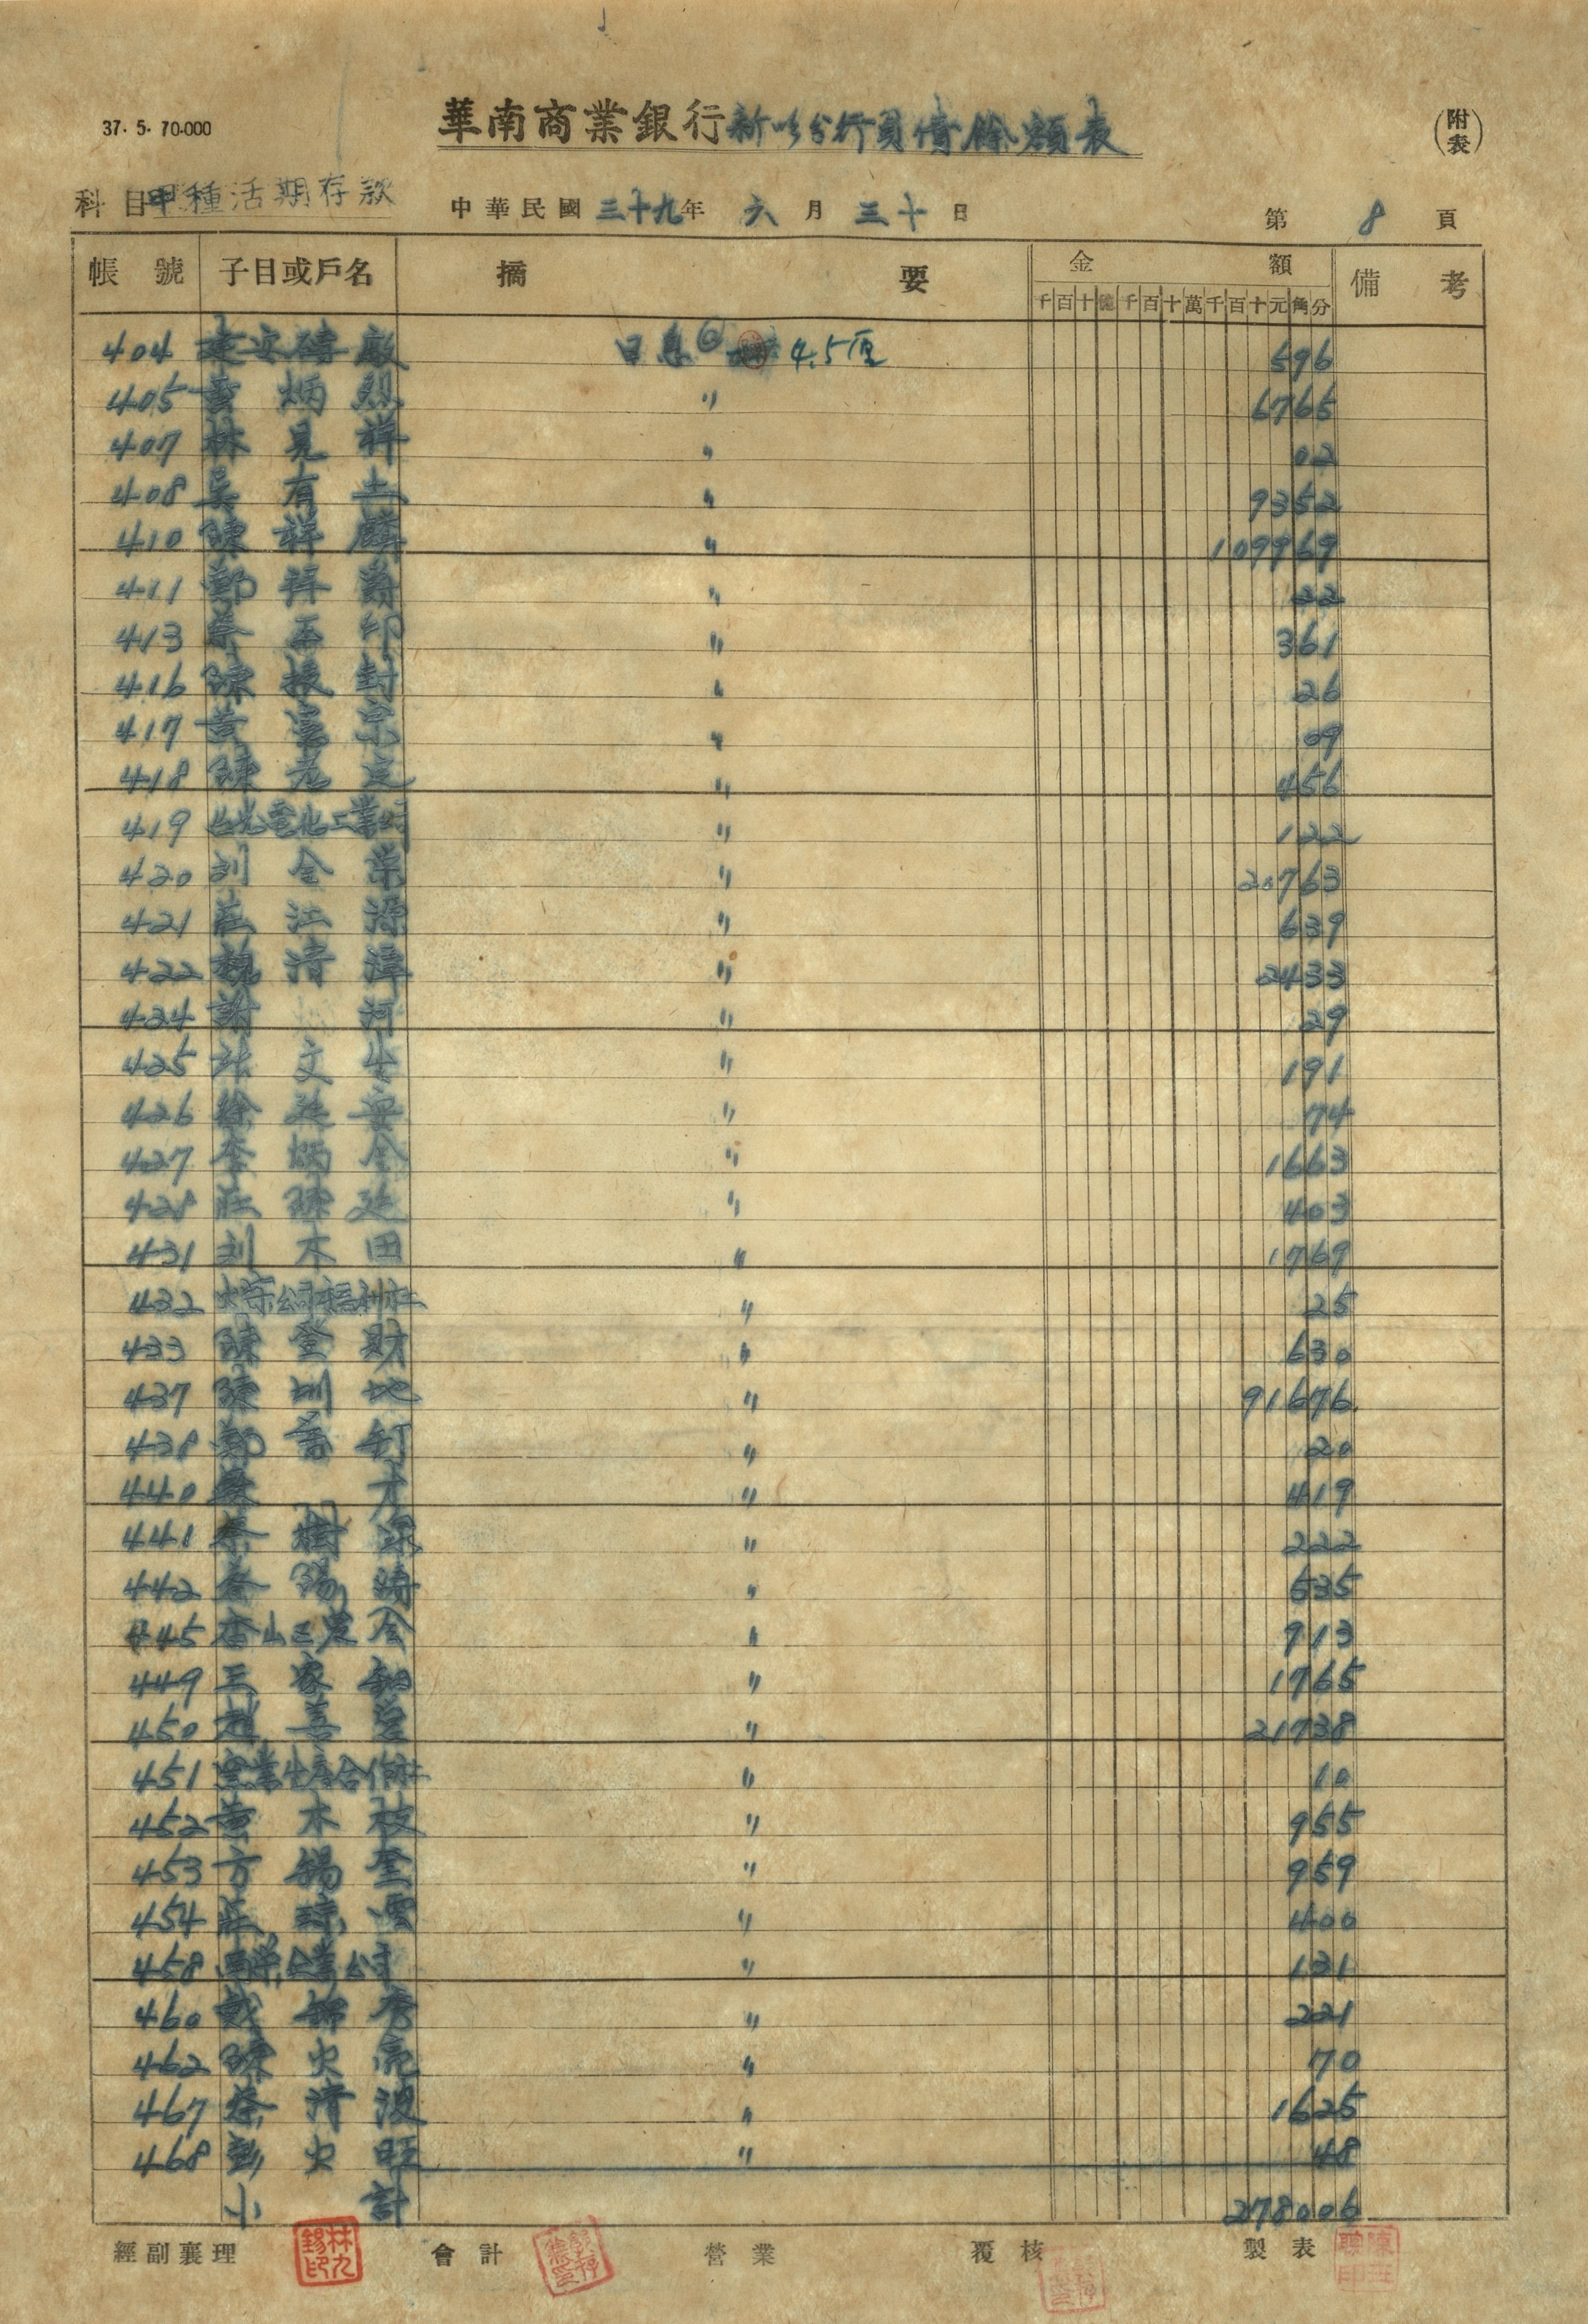 37. 5. 70.000
華南商業銀行新竹分行負債餘額表
(附表)
科目 甲種活期存款 中華民國三十九年六月三十日 第8頁
帳號 子目或戶名 摘要 金額 備考
千百十億千百十萬千百十元角分
404 建安磚廠 日息@ 4.5厘 596
405 黃炳烈 〃 6765
407 林見祥 〃 02
408 吳有土 〃 9352
410 陳祥麟 〃 109969
411 鄭拜 〃 22
413 蔡孟印 〃 361
416 陳振封 〃 26
417 黃宗 〃 09
418 陳老定 〃 456
419 台光電化工業公司 〃 122
420 刘金榮 〃 20763
421 莊江源 〃 639
422 魏清潭 〃 2433
424 謝河 〃 29
425 文生 〃 191
426 徐安 〃 74
427 李炳金 〃 1663
428 莊陳 〃 403
431 刘木田 〃 1769
432 福利社 〃 25
433 陳登財 〃 630
437 陳圳地 〃 91676
438 鄭釘 〃 20
440 蘇才 〃 419
441 蔡樹泉 〃 222
442 錫濤 〃 535
445 香山区農会 〃 913
449 三家 〃 1765
450 趙善 〃 21738
451 窯業生產合作社 〃 10
452 黃木枝 〃 955
453 方錫奎 〃 959
454 莊琼雲 〃 400
458 企業公司 〃 131
460 錦秀 〃 221
462 陳火亮 〃 70
467 蔡清波 〃 1625
468 彭火旺 〃 48
小計 278006
經副襄理 會計 營業 覆核 製表
林九錫印